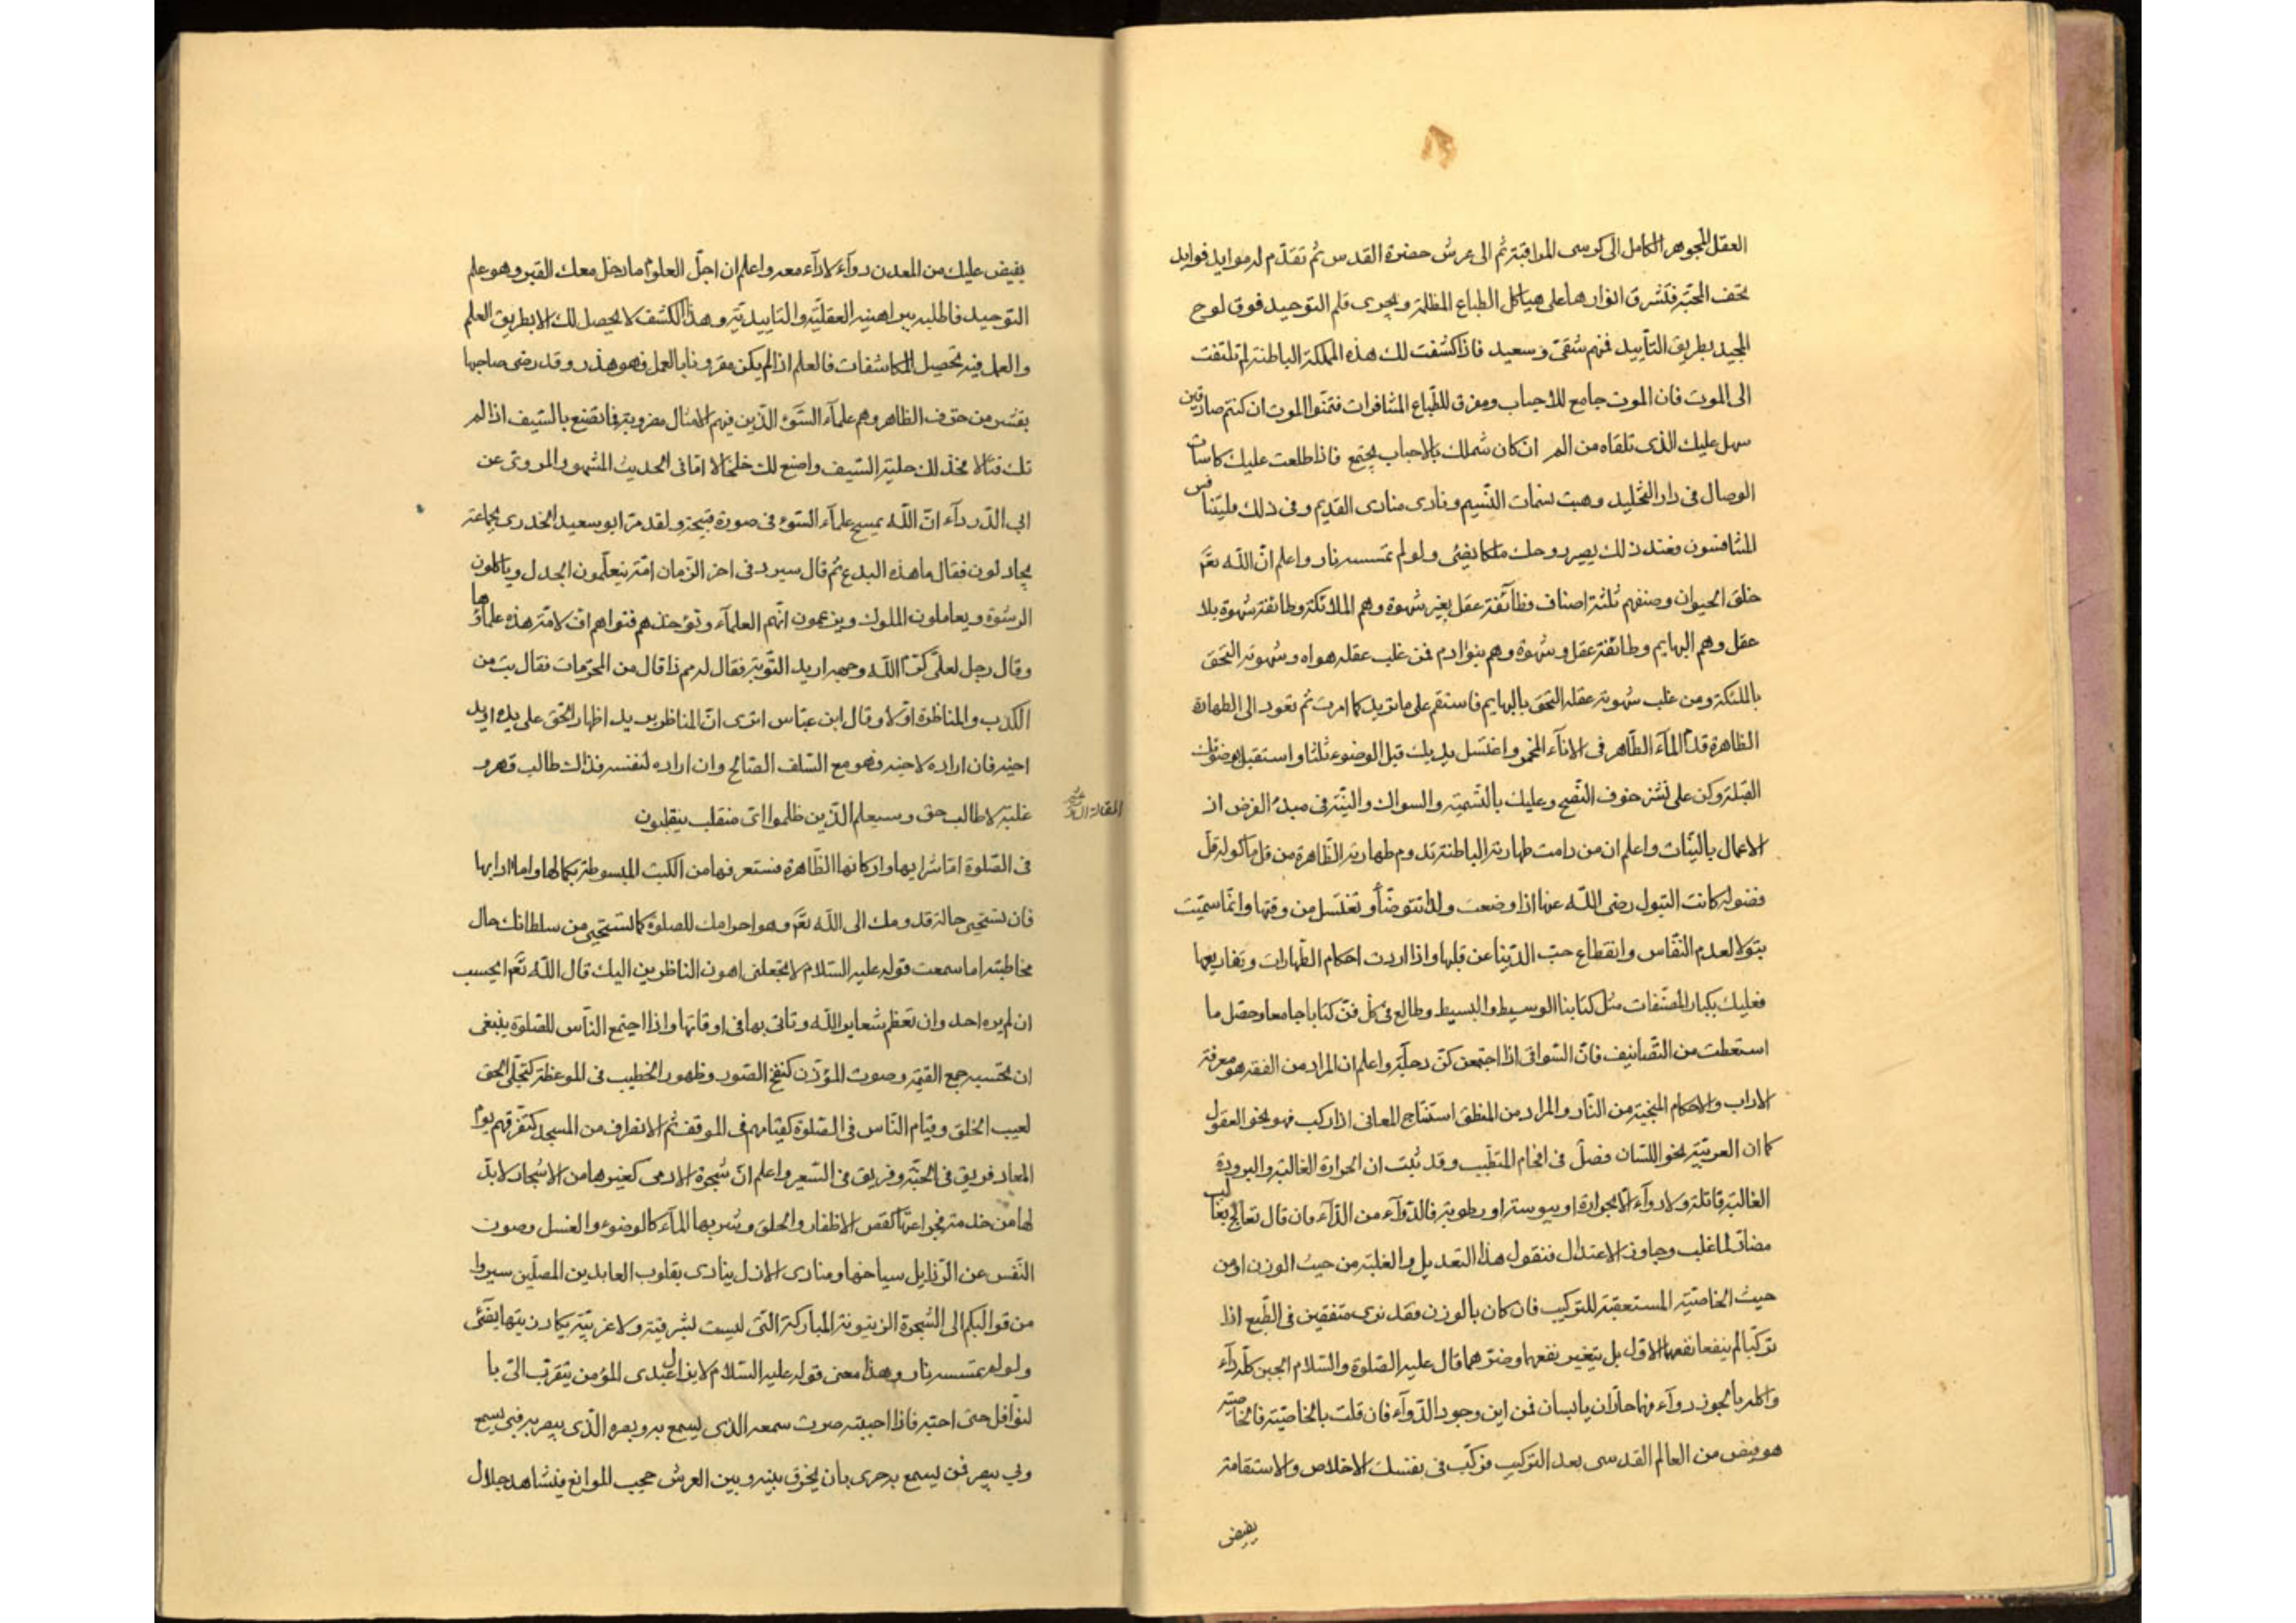 العقل الجوهر الكامل الى كرسى المراقبة ثم الى عرش حضرة القدس ثم تقدّم له موايد فوايد
تحف المحبّة فتشرق انوارها على هياكل الطباع المظلمة ويجرى قلم التوحيد فوق لوح
المجيد بطريق التأييد فمنهم شقى وسعيد فاذا كشفت لك هذه المملكة الباطنة لم تلتفت
الى الموت فان الموت جامع للاحباب ومفرق للطباع المتنافرات فتمنوا الموت ان كنتم صادقين
سهل عليك الذى تلقاه من الم ان كان شملك بالاحباب يجتمع فاذا طلعت عليك كاسات
الوصال فى دار التخليد وهبت نسمات النسيم ونادى منادى القديم وفى ذلك فليتنافس
المتنافسون فعند ذلك يصير روحك ملكا يضئى ولو لم تمسسه نار واعلم انّ اللّه تع
خلق الحيوان وصنفهم ثلثة اصناف فطائفة عقل بغير شهوة وهم الملائكة وطائفة شهوة بلا
عقل وهم البهايم وطائفة عقل وشهوة وهم بنوا ادم فمن غلب عقله هواه وشهوته التحق
بالملئكة ومن غلب شهوته عقله التحق بالبهايم فاستقم على ما تريد كما امرت ثم تعود الى الطهارة
الظاهرة قدّم المآء الطّاهر فى الاناء المخمر واغتسل يديك قبل الوضوء ثلثا واستقبل بوضوئك
القبلة وكن على نشز خوف النضح وعليك بالتسمية والسواك والنيّة فى مبدء الفرض اذ
الاعمال بالنيّات واعلم ان من دامت طهارته الباطنة تدوم طهارته الظّاهرة من قل ماكوله قلّ
فضوله كانت البتول رضى اللّه عنها اذا وضعت ولدا تتوضّأ وتغتسل من وقتها وانّما سمّيت
بتولا لعدم النّفاس وانقطاع حبّ الدّنيا عن قلبها واذا اردت احكام الطهارات وتفاريعها
فعليك بكبار المصنّفات مثل كتابنا الوسيط والبسيط وطالع فى كل فنّ كتابا جامعا وحصّل ما
استعطت من التّصانيف فانّ السّواقى اذا اجتمعن كنّ دجلة واعلم ان المراد من الفقه هو معرفة
الاداب والاحكام المنجية من النّار والمراد من المنطق استنتاج المعانى اذا ركب فهو نحو العقول
كما ان العربيّة نحو اللسان فصل فى افحام المتطّبب وقد ثبت ان الحرارة الغالبة والبرودة
الغالبة قاتلة ولا دوآء الا بحرارة او يبوسة او رطوبة فالدّوآء من الدّآء فان قال نعالج بغالب
مضادّ لما غلب وجاوز الاعتدال فنقول هذا التعديل والغلبة من حيث الوزن او من
حيث الخاصّية المستعقبة للتركيب فان كان بالوزن فقد نرى متفقين فى الطّبع اذا
تركّبا لم ينفعا نفعهما الاوّل بل يتغير نفعهما وضرّهما قال عليه الصّلوة والسّلام الجبن كلّه دآء
واكله بالجوز دوآء فهما حارّان يابسان فمن اين وجود الدّوآء فان قلت بالخاصّية فالخاصّية
هو فيض من العالم القدسى بعد التركيب فركّب فى نفسك الاخلاص والاستقامة
يفيض
يفيض عليك من المعدن دوآء لا دآء معه واعلم ان اجلّ العلوم ما دخل معك القبر وهو علم
التوحيد فاطلبه ببراهينه العقليّة والتاييديّة وهذا الكشف لا يحصل لك الا بطريق العلم
والعمل فيه تحصيل المكاشفات فالعلم اذا لم يكن مقرونا بالعمل فهو هذر وقد رضى صاحبها
بقشر من حتوف الظاهر وهم علمآء السّوء الّذين فيهم الامثال مضروبة فما تصنع بالسّيف اذا لم
تك قتّالا فخذ لك حلية السّيف واصنع لك خلخالا اما فى الحديث المشهور المروىّ عن
ابى الدّردآء انّ اللّه يمسخ علمآء السّوء فى صورة قبيحة ولقد مرّ ابو سعيد الخدرى بجماعة
يجادلون فقال ما هذه البدع ثم قال سيرد فى اخر الزّمان امّة يتعلّمون الجدل وياكلون
الرشوة ويعاملون الملوك ويزعمون انّهم العلمآء وتؤخذ هم فتواهم افّ لامّة هذه علماؤها
وقال رجل لعلىّ كرّم اللّه وجهه اريد التّوبة فقال له ممّ ذا قال من المحرّمات فقال تب من
الكذب والمناظرة اوّلا وقال ابن عبّاس اترى انّ المناظر يريد اظهار الحق على يده او يد
اخيه فان اراده لاخيه فهو مع السّلف الصّالح وان اراده لنفسه فذاك طالب قهر و
غلبة لا طالب حق وسيعلم الّذين ظلموا اى منقلب ينقلبون
المقالة
فى الصّلوة امّا شرايها واركانها الظّاهرة فستعرفها من الكتب المبسوطة بكمالها واما ادابها
فان تستحيى حالة قدومك الى اللّه تع وهو احرامك للصلوة كما تستحيى من سلطانك حال
مخاطبته اما سمعت قوله عليه السّلام لا تجعلنى اهون الناظرين اليك قال اللّه تع ايحسب
ان لم يره احد وان تعظم شعاير اللّه وتاتى بها فى اوقاتها واذا اجتمع النّاس للصّلوة ينبغى
ان تحتسبه جمع القيمة وصوت المؤذّن كنفخ الصّور وظهور الخطيب فى الموعظة كتجلّى الحق
لعيب الخلق وقيام النّاس فى الصّلوة كقيامهم فى الموقف ثم الانصراف من المسجد كتفرّقهم يوم
المعاد فريق فى الجنّة وفريق فى السّعير واعلم انّ شجرة الادمى كغيرها من الاشجار لا بدّ
لها من خدمة فجزاءتها كقص الاظفار والحلق وشربها المآء كالوضوء والغسل وصون
النّفس عن الرّذايل سياحتها ومنادى الازل ينادى بقلوب العابدين المصلّين سيروا
من قوالبكم الى الشّجرة الزيتونة المباركة التى ليست بشرقيّة ولا غربيّة يكاد زيتها يضئى
ولو لم تمسسه نار وهذا معنى قوله عليه السّلام لا يزال عبدى المؤمن يتقرّب الىّ با
لنوافل حتى احبّه فاذا احببته صرت سمعه الذى يسمع به وبصره الّذى يبصر به فبى يسمع
وبى يبصر فمن يسمع به حرى بان يخرق بينه وبين العرش حجب الموانع فيشاهد جلال